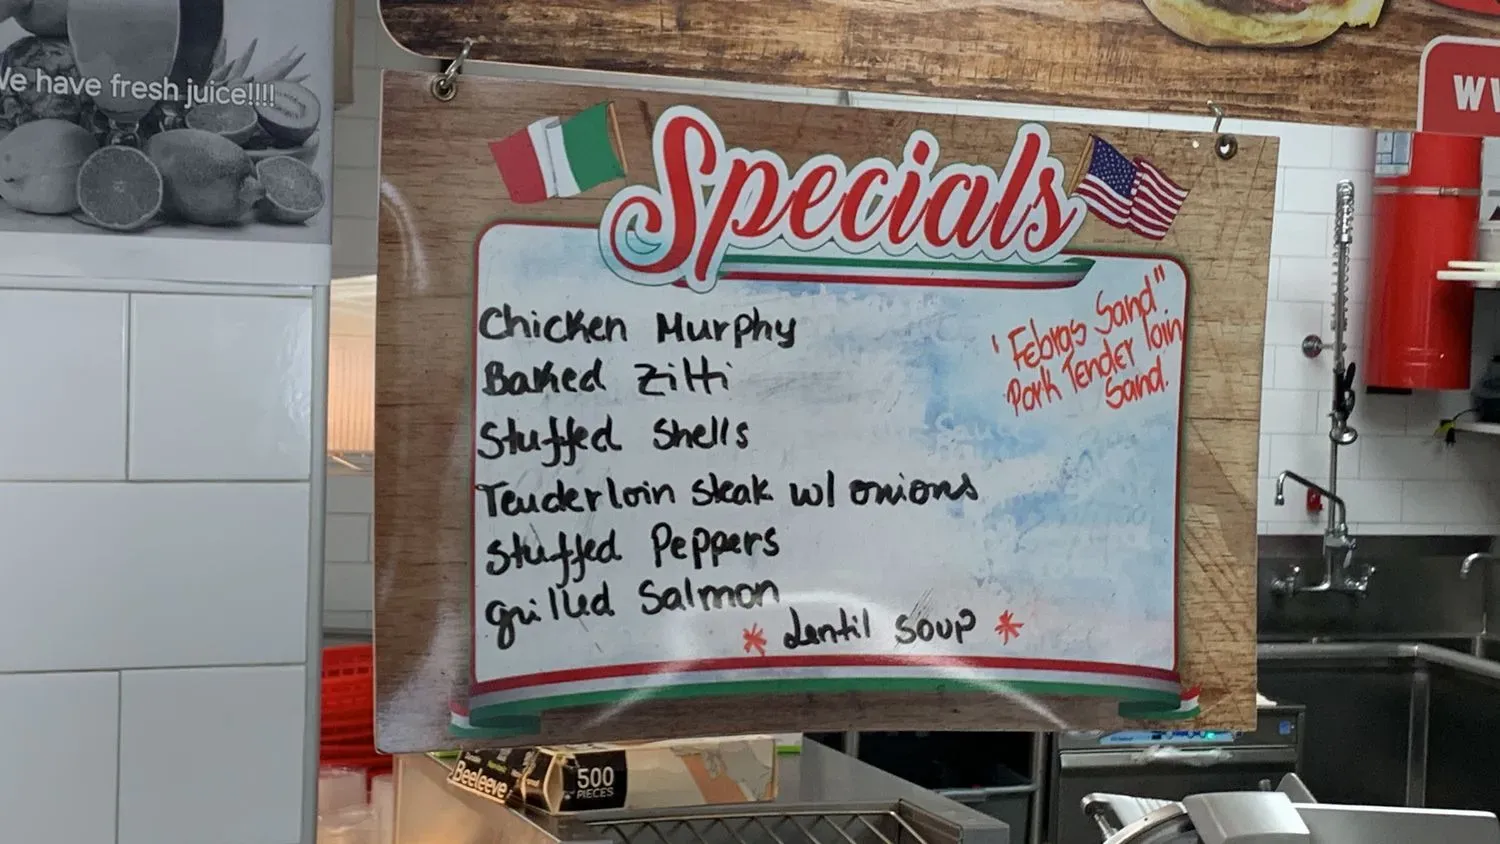 We have fresh juice!!!!
Specials
Chicken Murphy
Baked Zitti
Stuffed Shells
Tenderloin Steak w/ onions
Stuffed Peppers
grilled Salmon
* Lentil Soup *
'Febras Sand"
Pork Tender loin
Sand.
Beeleeve
500
PIECES